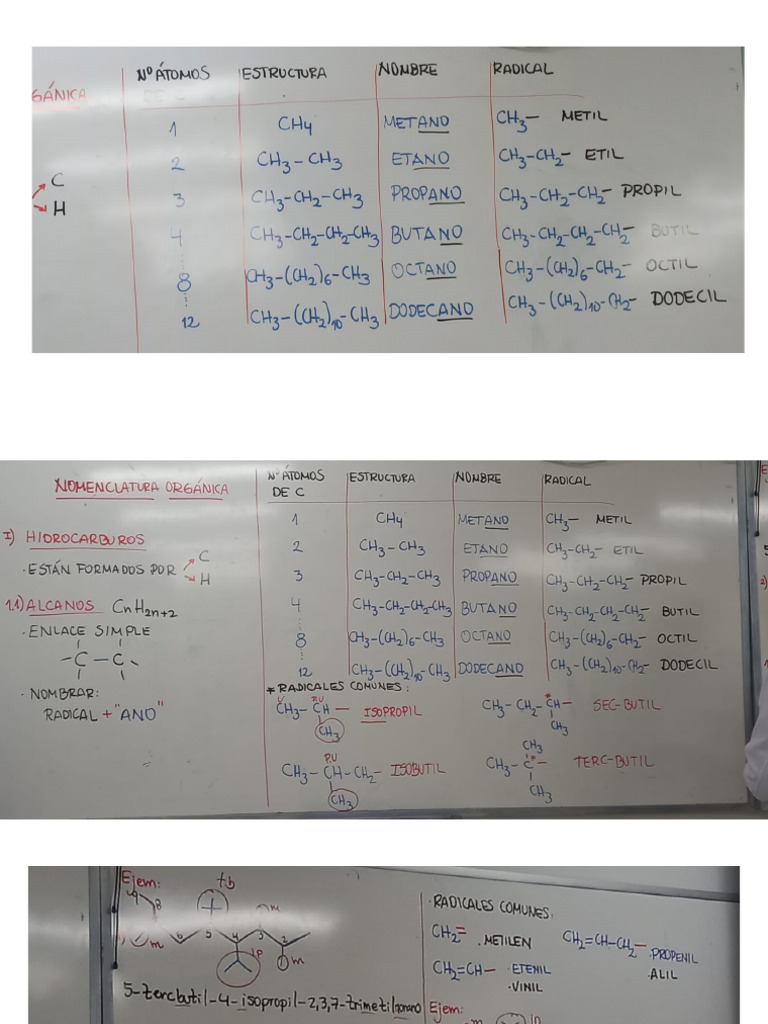 Nº ÁTOMOS ESTRUCTURA NOMBRE RADICAL
GÁNICA DE C
1 CH4 METANO CH3- METIL
2 CH3-CH3 ETANO CH3-CH2- ETIL
C
H
3 CH3-CH2-CH3 PROPANO CH3-CH2-CH2- PROPIL
4 CH3-CH2-CH2-CH3 BUTANO CH3-CH2-CH2-CH2- BUTIL
8 CH3-(CH2)6-CH3 OCTANO CH3-(CH2)6-CH2- OCTIL
12 CH3-(CH2)10-CH3 DODECANO CH3-(CH2)10-CH2- DODECIL
NOMENCLATURA ORGÁNICA
I) HIDROCARBUROS
· ESTÁN FORMADOS POR C
H
1.1) ALCANOS CnH2n+2
· ENLACE SIMPLE
-C-C-
· NOMBRAR:
RADICAL + "ANO"
Nº ÁTOMOS ESTRUCTURA NOMBRE RADICAL
DE C
1 CH4 METANO CH3- METIL
2 CH3-CH3 ETANO CH3-CH2- ETIL
3 CH3-CH2-CH3 PROPANO CH3-CH2-CH2- PROPIL
4 CH3-CH2-CH2-CH3 BUTANO CH3-CH2-CH2-CH2- BUTIL
8 CH3-(CH2)6-CH3 OCTANO CH3-(CH2)6-CH2- OCTIL
12 CH3-(CH2)10-CH3 DODECANO CH3-(CH2)10-CH2- DODECIL
* RADICALES COMUNES:
CH3-CH- ISOPROPIL CH3-CH2-CH- SEC-BUTIL
CH3 CH3
CH3
CH3-CH-CH2- ISOBUTIL CH3-C- TERC-BUTIL
CH3 CH3
Ejem: tb
9 8 m
m 6 5 4 3 2
ip m
5-tercbutil-4-isopropil-2,3,7-trimetilnonano
· RADICALES COMUNES:
CH2= · METILEN CH2=CH-CH2- · PROPENIL
· ALIL
CH2=CH- · ETENIL
· VINIL
Ejem: